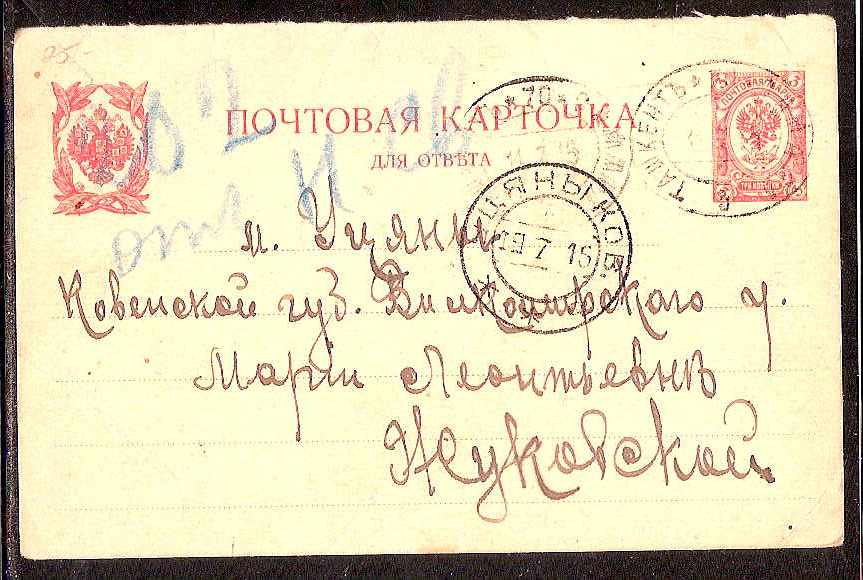 25-
ПОЧТОВАЯ КАРТОЧКА
ДЛЯ ОТВѢТА
ПОЧТОВАЯ МАРКА
ТРИ КОПѢЙКИ
3 3
ТАШКЕНТЪ
*70*
11.7.15
УЦЯНЫ КОВ.
7 15
м. Уцяны
Ковенской губ. Вилкомирского у.
Маріи Леонтьевнѣ
Жуковской